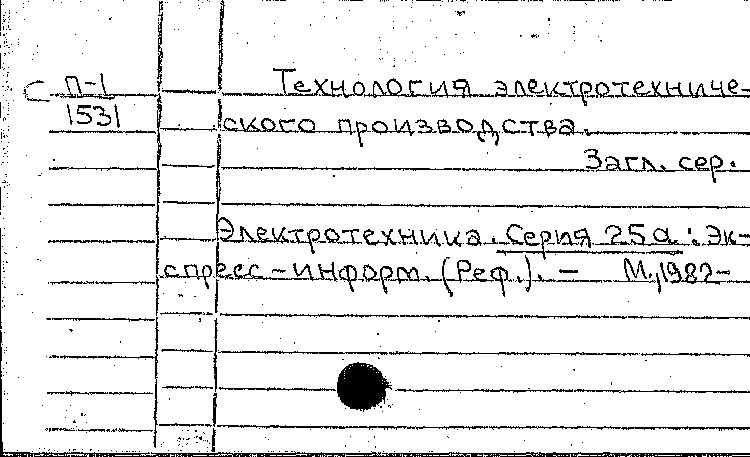 С П-1 Технология электротехниче-
1531 ского производства.
Загл. сер.
Электротехника. Серия 25а: Эк-
спресс-информ. (Реф.). – М., 1982-